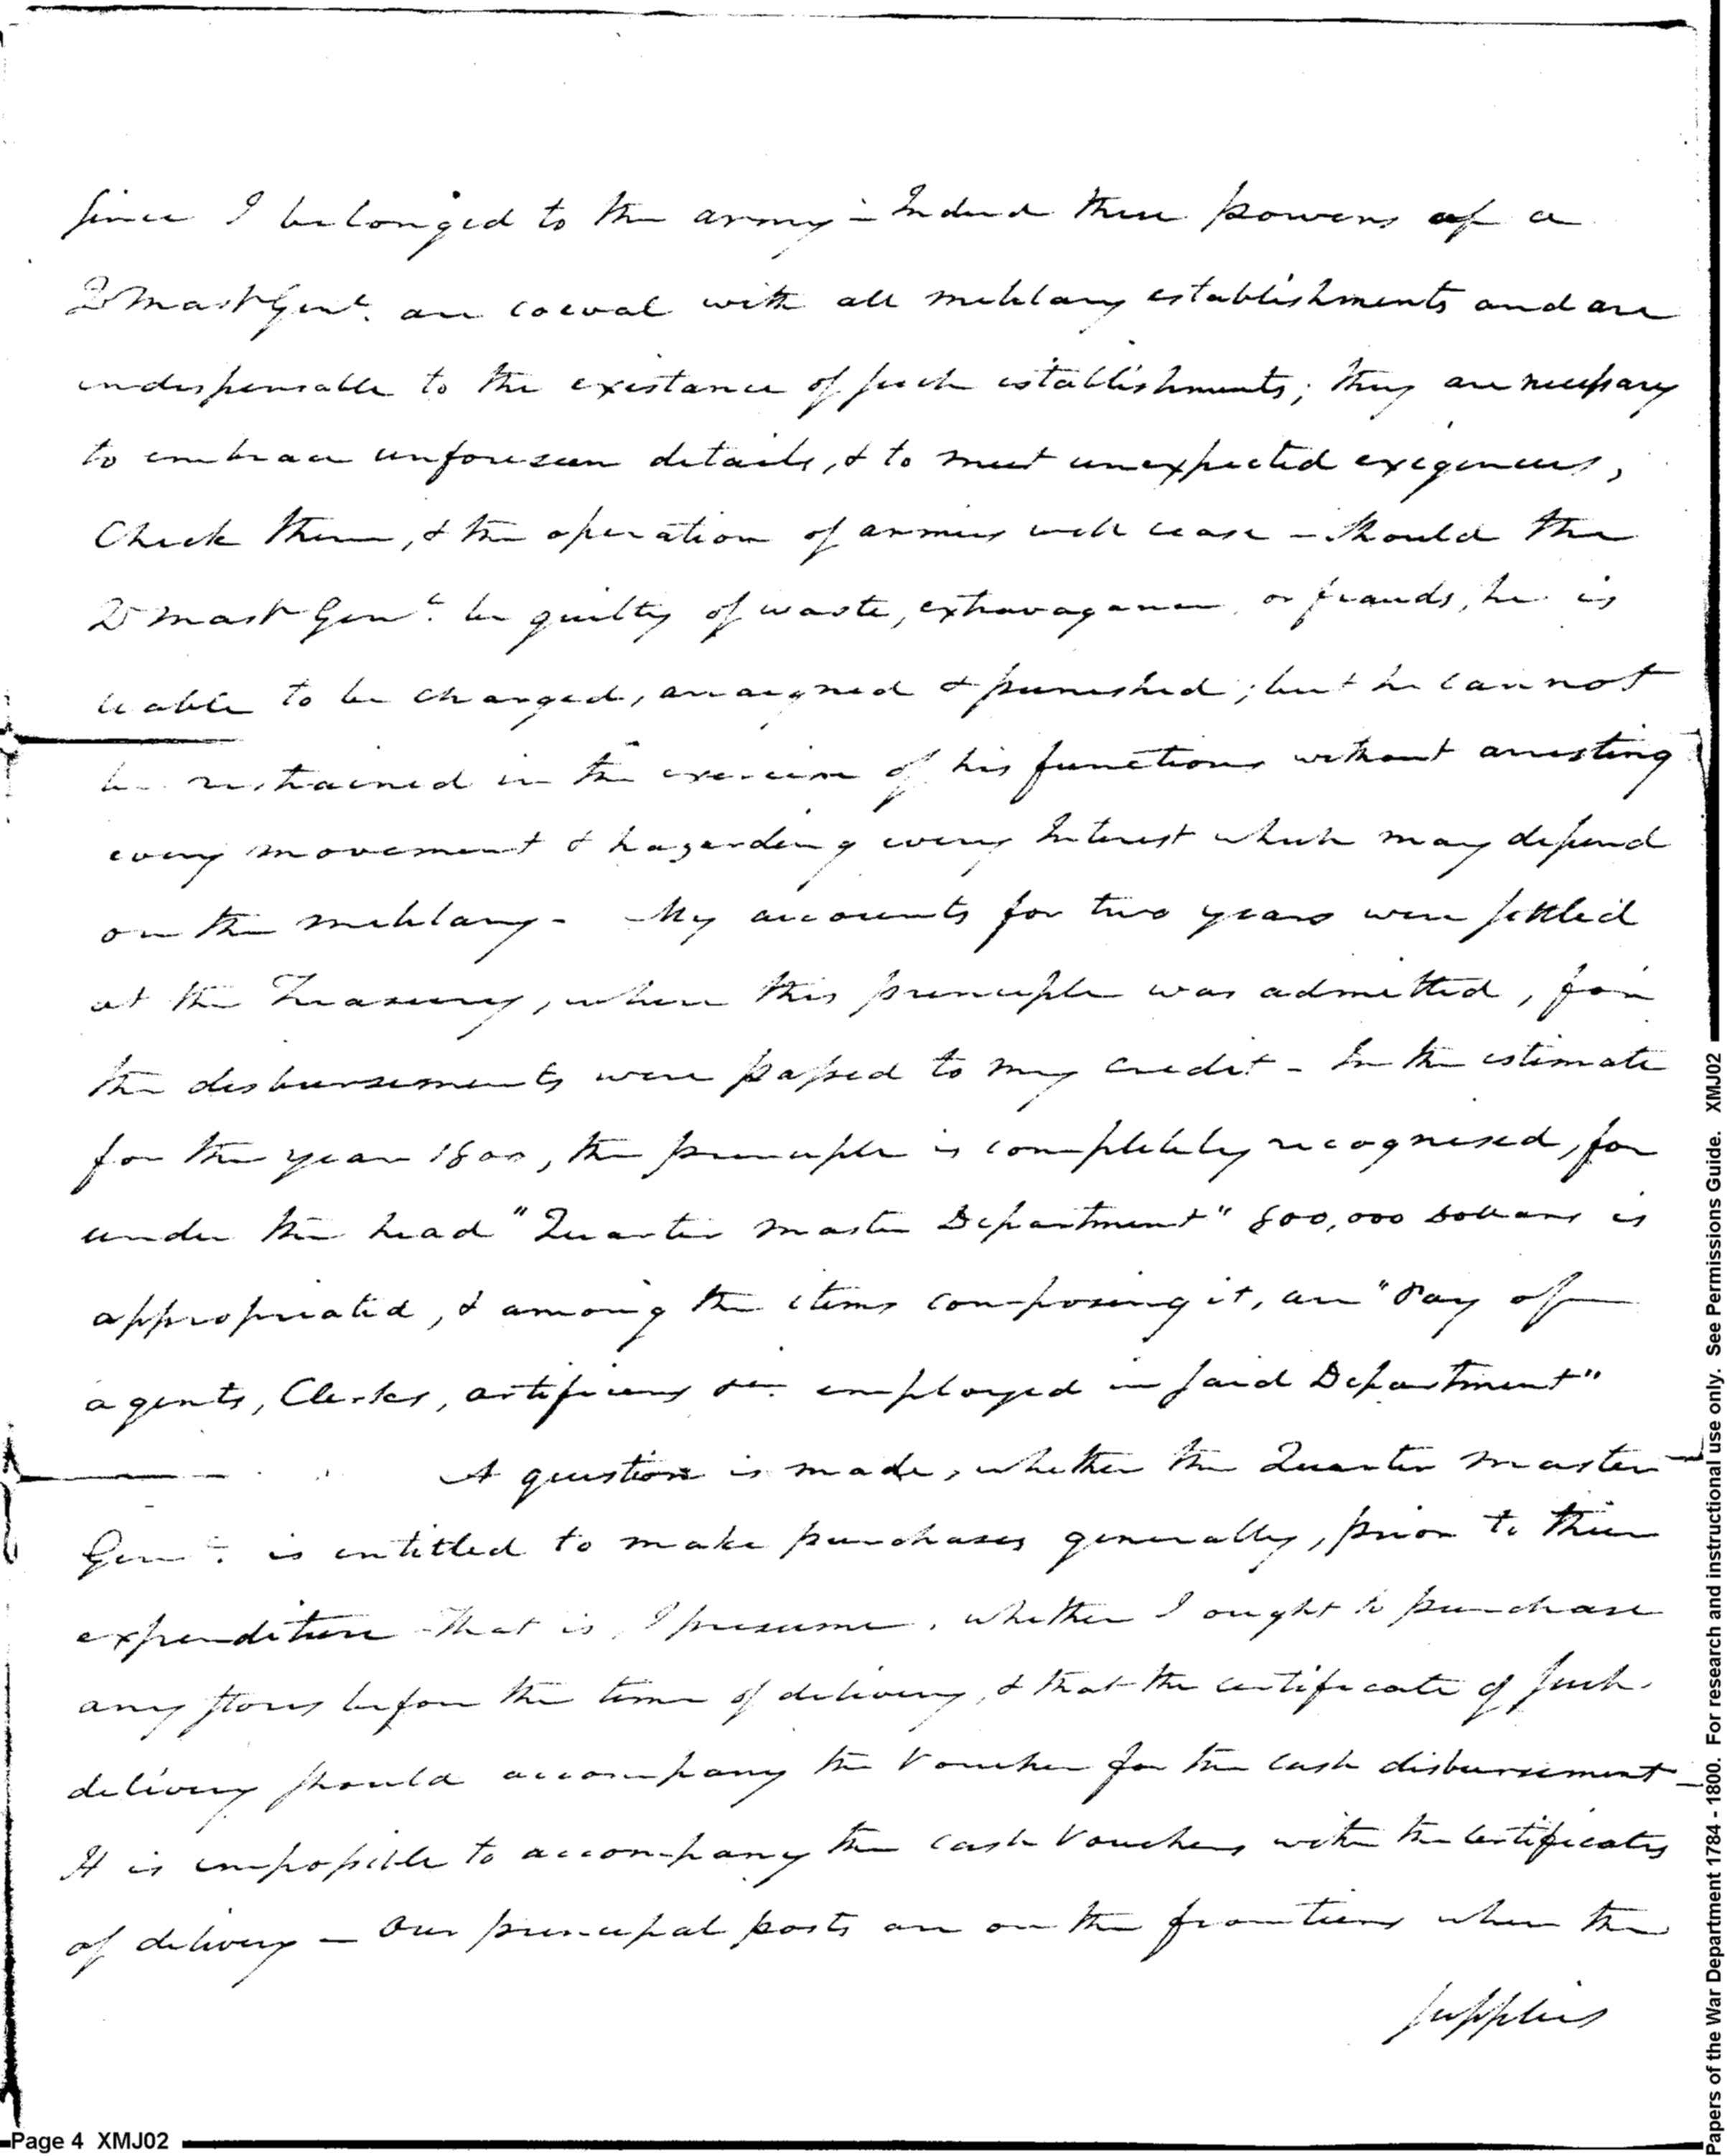 since I belonged to the army – Indeed these powers of a
QrMastrGenl. are coeval with all military establishments and are
indispensable to the existance of such establishments; they are necessary
to embrace unforeseen details, & to meet unexpected exigencies,
Check them, & the operation of armies will cease – Should the
Qr Mastr Genl. be guilty of waste, extravagance or frauds, he is
liable to be charged, arraigned & punished; but he cannot
be restrained in the exercise of his functions without arresting
every movement & hazarding every Interest which may depend
on the military – My accounts for two years were settled
at the Treasury, where this principle was admitted, for
the disbursements were passed to my credit – In the estimate
for the year 1800, the principle is completely recognised, for
under the head "Quarter master Department" 800,000 dollars is
appropriated, & among the items composing it, are "Pay of
agents, Clerks, artificers &c. employed in said Department"
A question is made, whether the Quarter master
Genl. is entitled to make purchases generally, prior to their
expenditure – that is, I presume, whether I ought to purchase
any stores before the time of delivery, & that the certificate of such
delivery should accompany the Voucher for the cash disbursement –
It is impossible to accompany the cash Vouchers with the Certificates
of delivery – Our principal posts are on the frontiers where the
supplies
Page 4 XMJ02
Papers of the War Department 1784 - 1800. For research and instructional use only. See Permissions Guide. XMJ02